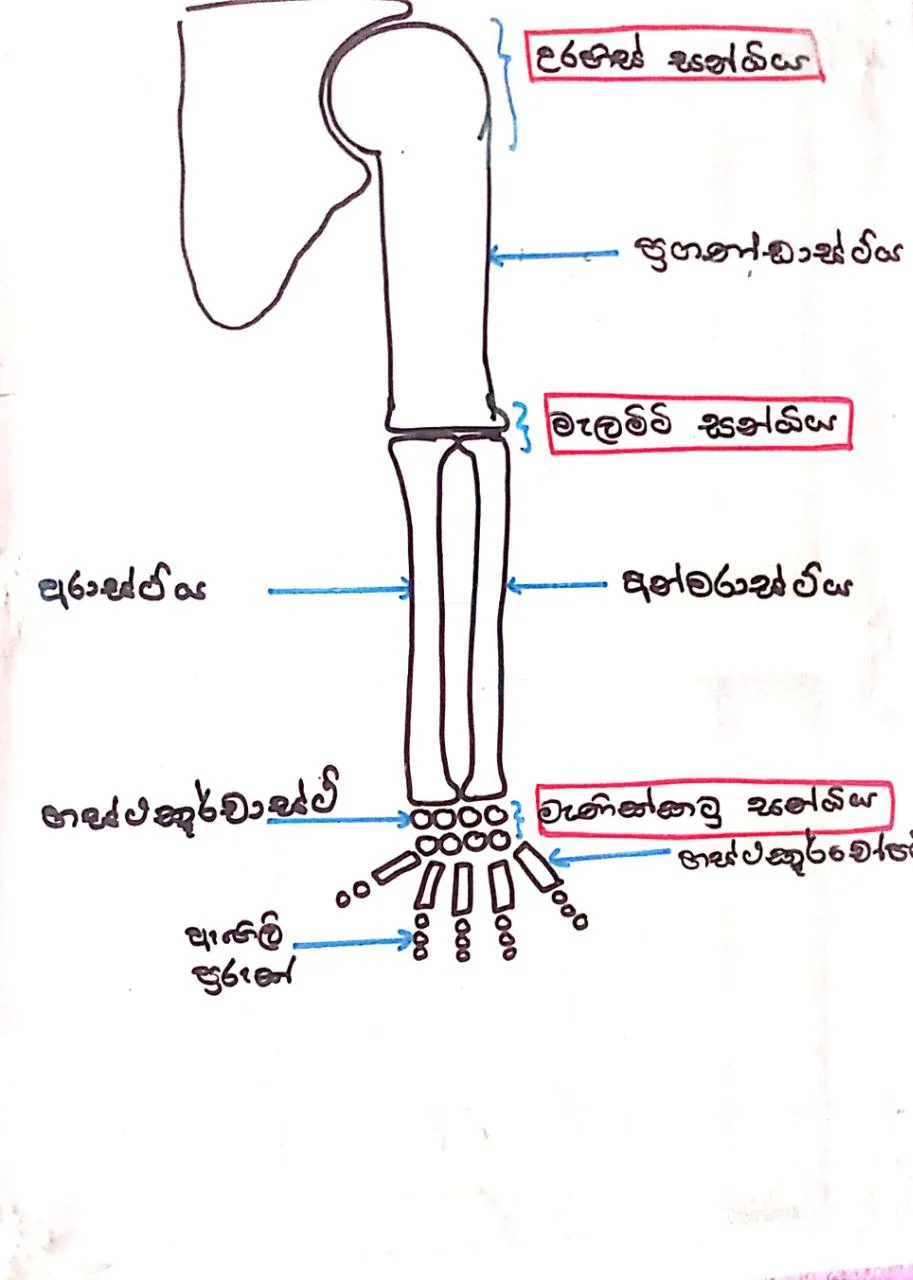 උරහිස් සන්ධිය
ප්‍රගණ්ඩාස්ථිය
වැලමිට සන්ධිය
අරාස්ථිය
අන්වරාස්ථිය
හස්ථකූර්චාස්ථි
මැණික්කටු සන්ධිය
ඇඟිලි
පුරුක්